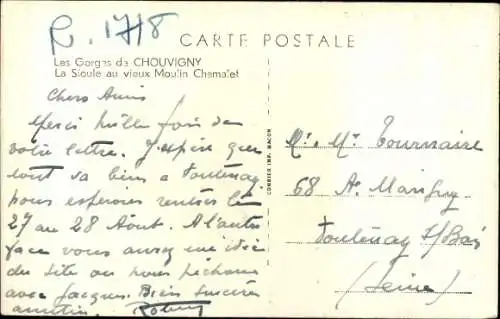 R. 17/8
CARTE POSTALE
Les Gorges de CHOUVIGNY
La Sioule au vieux Moulin Chamalet
Chers Amis
Merci mille fois de
votre lettre. J'espère que
tout va bien a Fontenay
nous espérons rentrer le
27 au 28 Août. A l'autre
face vous aurez une idée
du site ou nous pêchons
avec Jacques. Bien sincère
amitiés.
COMBIER IMP. MACON
Mr. Mr Tournaire
68 Av Marigny
Fontenay s/Bois
(Seine)